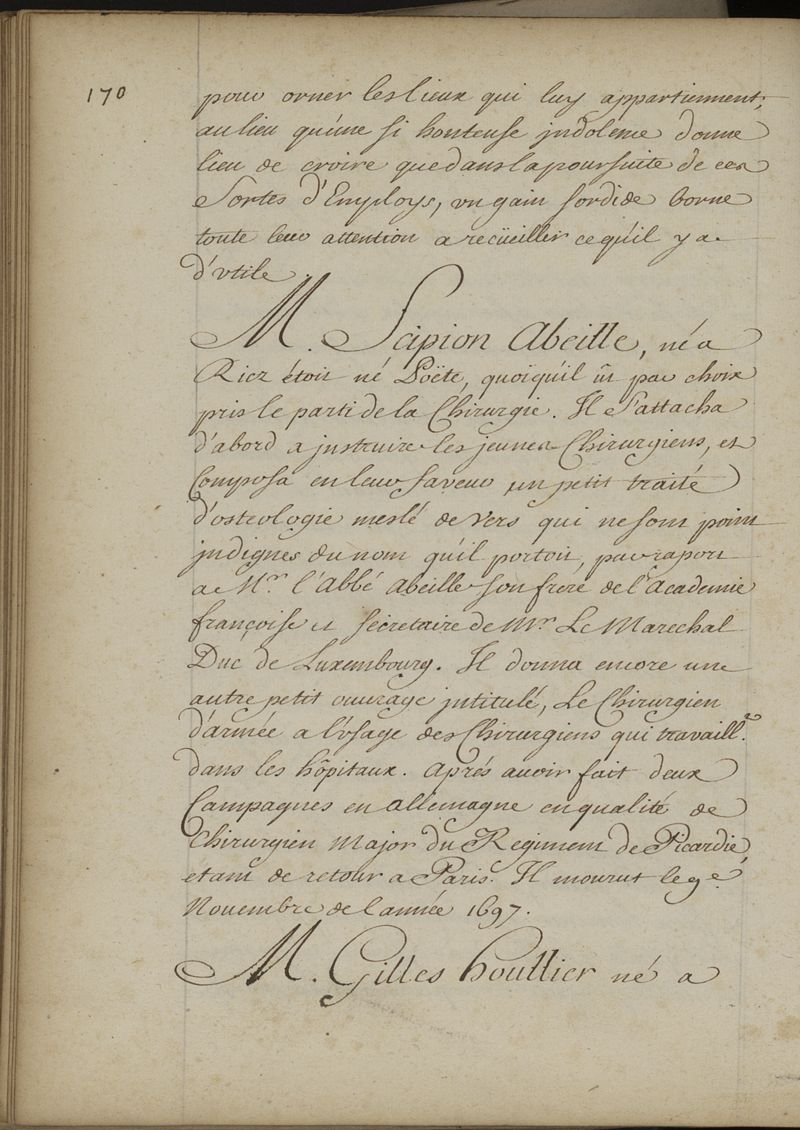 170
pour orner les lieux qui luy appartiennent,
au lieu qu'une si honteuse jndolence donne
lieu de croire que dans la poursuite de ces
Sortes d'Employs, vn gain sordide borne
toute leur attention a recüeillir ce qu'il y a
d'vtile
M. Scipion Abeille, né a
Riez étoit né Poëte, quoiqu'il ût par choix
pris le parti de la Chirurgie. Il S'attacha
d'abord a jnstruire les jeunes Chirurgiens, et
Composa en leur faveur un petit traité
d'osteologie meslé de Vers qui ne sont point
jndignes du nom qu'il portoit, par raport
a Mr. l'Abbé Abeille son frere de l'Academie
françoise et sécretaire de Mr. Le Marechal
Duc de Luxembourg. Il donna encore une
autre petit ouvrage jntitulé, Le Chirurgien
d'armée a l'vsage des Chirurgiens qui travaill.t
dans les hôpitaux. Aprés avoir fait deux
Campagnes en allemagne en qualité de
Chirurgien Major du Regiment de Picardie,
etant de retour a Paris. Il mourut le 9e.
Novembre de l'année 1697.
M. Gilles houllier né a